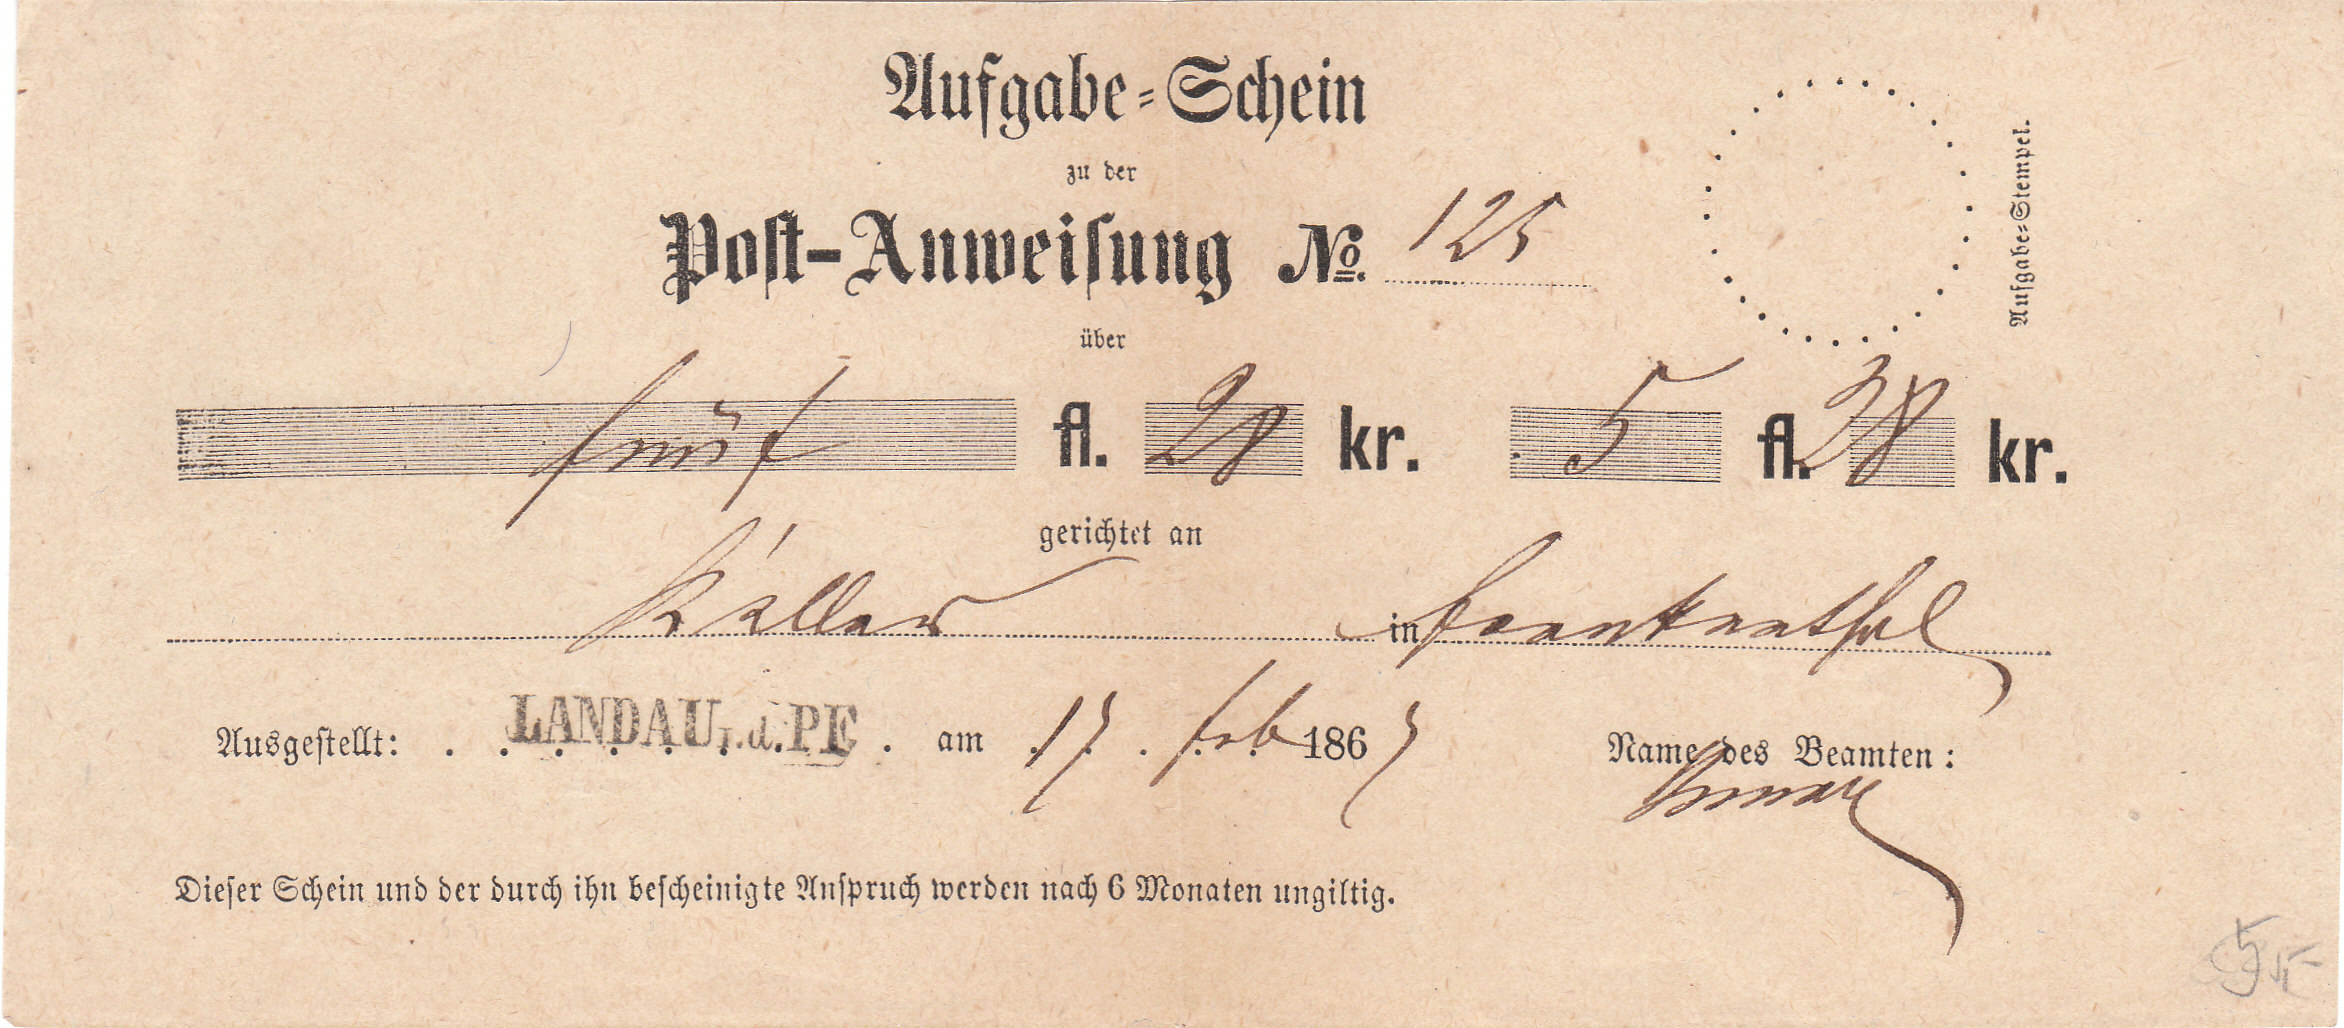 Aufgabe-Schein
zu der
Post-Anweisung No. 125
über
fünf fl. 28 kr. 5 fl. 28 kr.
gerichtet an
Käller in Frankenthal
Ausgestellt: LANDAU i.d. PF. am 17. Feb 1867
Name des Beamten:
Dieser Schein und der durch ihn bescheinigte Anspruch werden nach 6 Monaten ungiltig.
Aufgabe-Stempel.